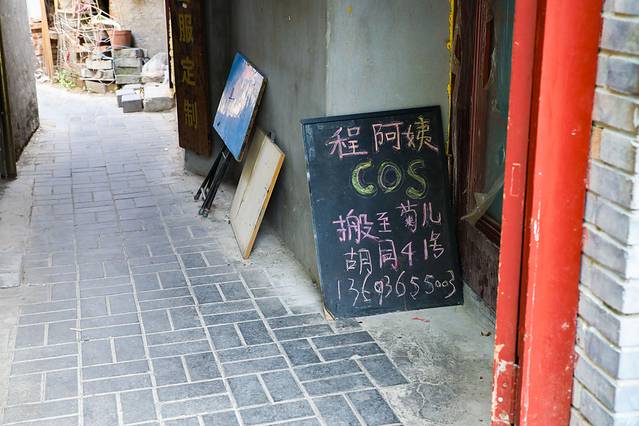 服定制
程阿姨
COS
搬至菊儿
胡同41号
13693655003